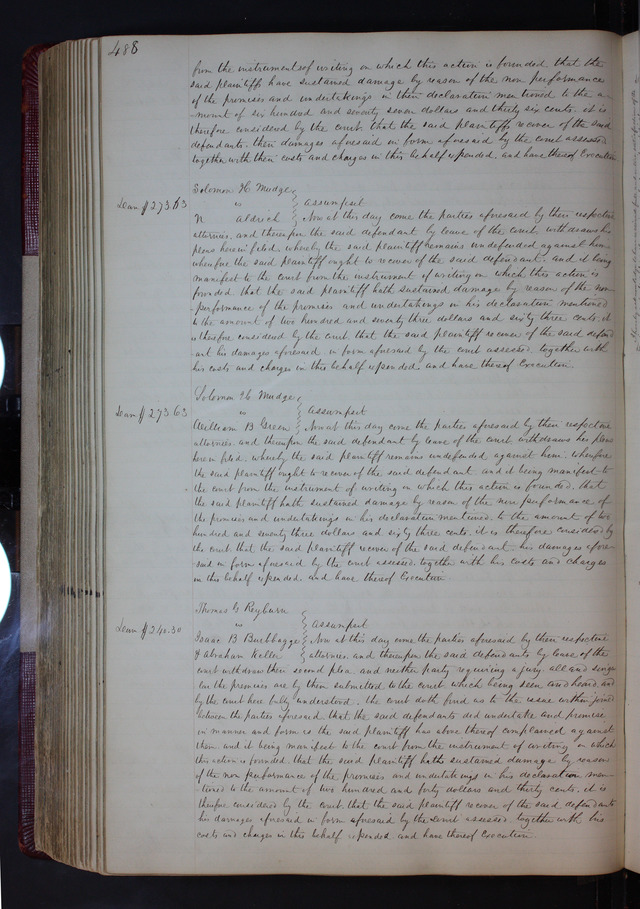 488
from the instruments of writing on which this action is founded that the
said plaintiffs have sustained damage by reason of the non performance
of the promises and undertakings in their declaration mentioned to the a-
mount of six hundred and seventy seven dollars and thirty six cents. it is
therefore considered by the court that the said plaintiffs recover of the said
defendants. their damages aforesaid in form aforesaid by the court assessed
together with their costs and charges in this behalf expended. and have thereof Execution
Solomon H Mudge
Dam $273.63 vs Assumpsit
N Aldrich Now at this day come the parties aforesaid by their respective
attornies. and thereupon the said defendant by leave of the court withdraws his
pleas herein filed. whereby the said plaintiff remains undefended against him
wherefore the said plaintiff ought to recover of the said defendant. and it being
manifest to the court from the instrument of writing on which this action is
founded that the said plaintiff hath sustained damage by reason of the non
performance of the promises and undertakings in his declaration mentioned
to the amount of two hundred and seventy three dollars and sixty three cents. it
is therefore considered by the court that the said plaintiff recover of the said defend
ant his damages aforesaid in form aforesaid by the court assessed together with
his costs and charges in this behalf expended. and have thereof Execution.
Solomon H Mudge
Dam $273.63 vs Assumpsit
William B Green Now at this day come the parties aforesaid by their respective
attornies. and thereupon the said defendant by leave of the court withdraws his pleas
herein filed. whereby the said plaintiff remains undefended against him. wherefore
the said plaintiff ought to recover of the said defendant and it being manifest to
the court from the instrument of writing on which this action is founded. that
the said plaintiff hath sustained damage by reason of the non performance of
the promises and undertakings in his declaration mentioned to the amount of two
hundred and seventy three dollars and sixty three cents. it is therefore considered by
the court that the said plaintiff recover of the said defendant. his damages afore
said in form aforesaid by the court assessed together with his costs and charges
in this behalf expended. and have thereof Execution
Thomas G Reyburn
Dam $240.30 vs Assumpsit
Isaac B Burbbayge Now at this day come the parties aforesaid by their respective
& Abraham Keller attornies. and thereupon the said defendants by leave of the
court withdraw their second plea. and neither party requiring a jury all and singu
lar the premises are by them submitted to the court which being seen and heard and
by the court here fully understood. the court doth find as to the issue within joined
between the parties aforesaid that the said defendants did undertake and promise
in manner and form as the said plaintiff has above thereof complained against
them. and it being manifest to the court from the instrument of writing on which
this action is founded. that the said plaintiff hath sustained damage by reason
of the non performance of the promises and undertakings in his declaration men-
tioned to the amount of two hundred and forty dollars and thirty cents. it is
therefore considered by the court that the said plaintiff recover of the said defendants
his damages aforesaid in form aforesaid by the Court assessed together with his
costs and charges in this behalf expended and have thereof Execution.